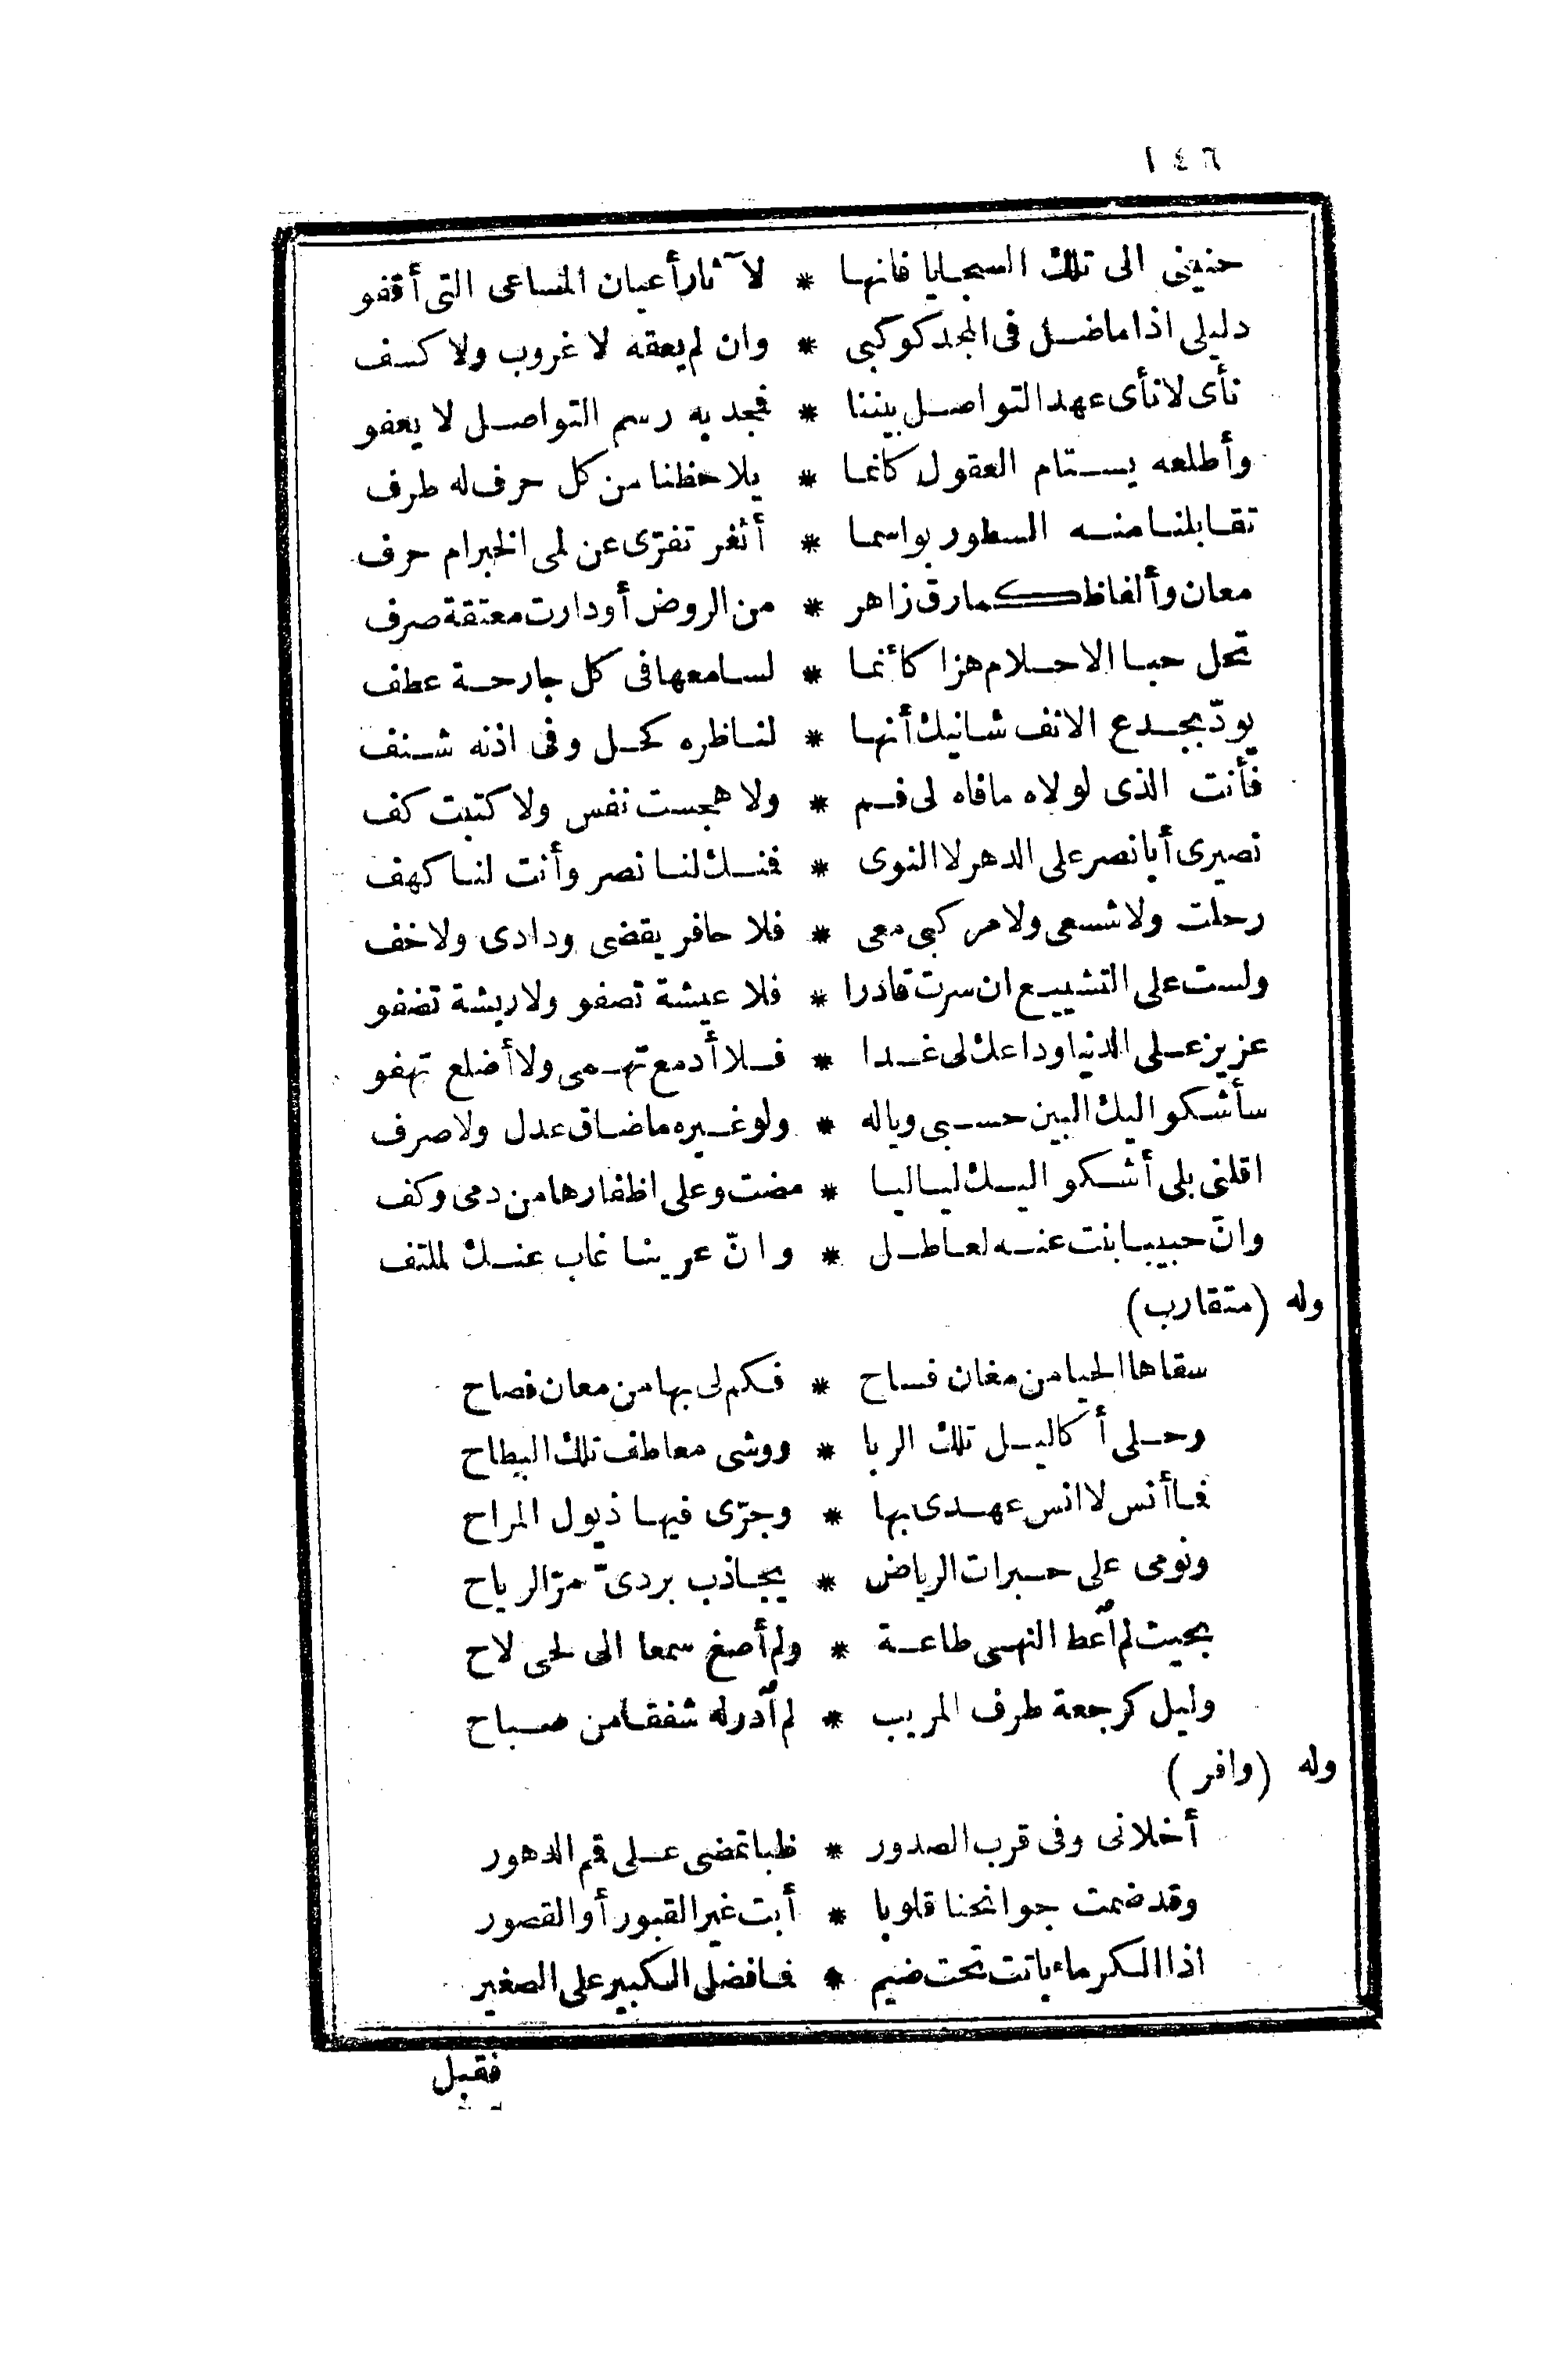 ١٤٦
حنينى الى تلك السجايا فانها * لآثار أعيان المساعى التى أقفو
دليلى اذا ماضل فى المجد كوكبى * وان لم يعقه لا غروب ولا كسف
نأى لا نأى عهد التواصل بيننا * فجد به رسم التواصل لا يعفو
وأطلعه يستام العقول كانما * يلاحظنا من كل حرف له طرف
تقابلنا منه السطور بواسما * أثغر تفرّى عن لمى الحبر ام حرف
معان وألفاظ كما رق زاهر * من الروض أو دارت معتقة صرف
تحل حبا الاحلام هزا كأنما * لسامعها فى كل جارحة عطف
يودّ بجدع الانف شانيك أنها * لناظره كحل وفى اذنه شنف
فأنت الذى لولاه مافاه لى فم * ولا هجست نفس ولا كتبت كف
نصيرى أبا نصر على الدهر لا النوى * فمنك لنا نصر وأنت لنا كهف
رحلت ولا شسعى ولا مركبى معى * فلا حافر يقضى ودادى ولا خف
ولست على التشييع ان سرت قادرا * فلا عيشة تصفو ولا ريشة تضفو
عزيز على الدنيا وداعك لى غدا * فلا أدمع تهمى ولا أضلع تهفو
سأشكو اليك البين حسبى وياله * ولو غيره ماضاق عدل ولا صرف
اقلنى بلى أشكو اليك لياليا * مضت وعلى اظفارها من دمى وكف
وانّ حبيبا بنت عنه لعاطل * وانّ عرينا غاب عنك لملتف
وله (متقارب)
سقاها الحيا من مغان فساح * فكم لى بها من معان فصاح
وحلى أكاليل تلك الربا * ووشى معاطف تلك البطاح
فما أنس لا انس عهدى بها * وجرّى فيها ذيول المراح
ونومى على حبرات الرياض * يجاذب بردىّ مرّ الرياح
بحيث لم اُعط النهى طاعة * ولم أصغ سمعا الى لحى لاح
وليل كرجعة طرف المريب * لم اُدر له شفقا من صباح
وله (وافر)
أخلانى وفى قرب الصدور * ظبا تمضى على قمم الدهور
وقد ضمت جوانحنا قلوبا * أبت غير القبور أو القصور
اذا الكرماء باتت تحت ضيم * فما فضل الكبير على الصغير
فقبل